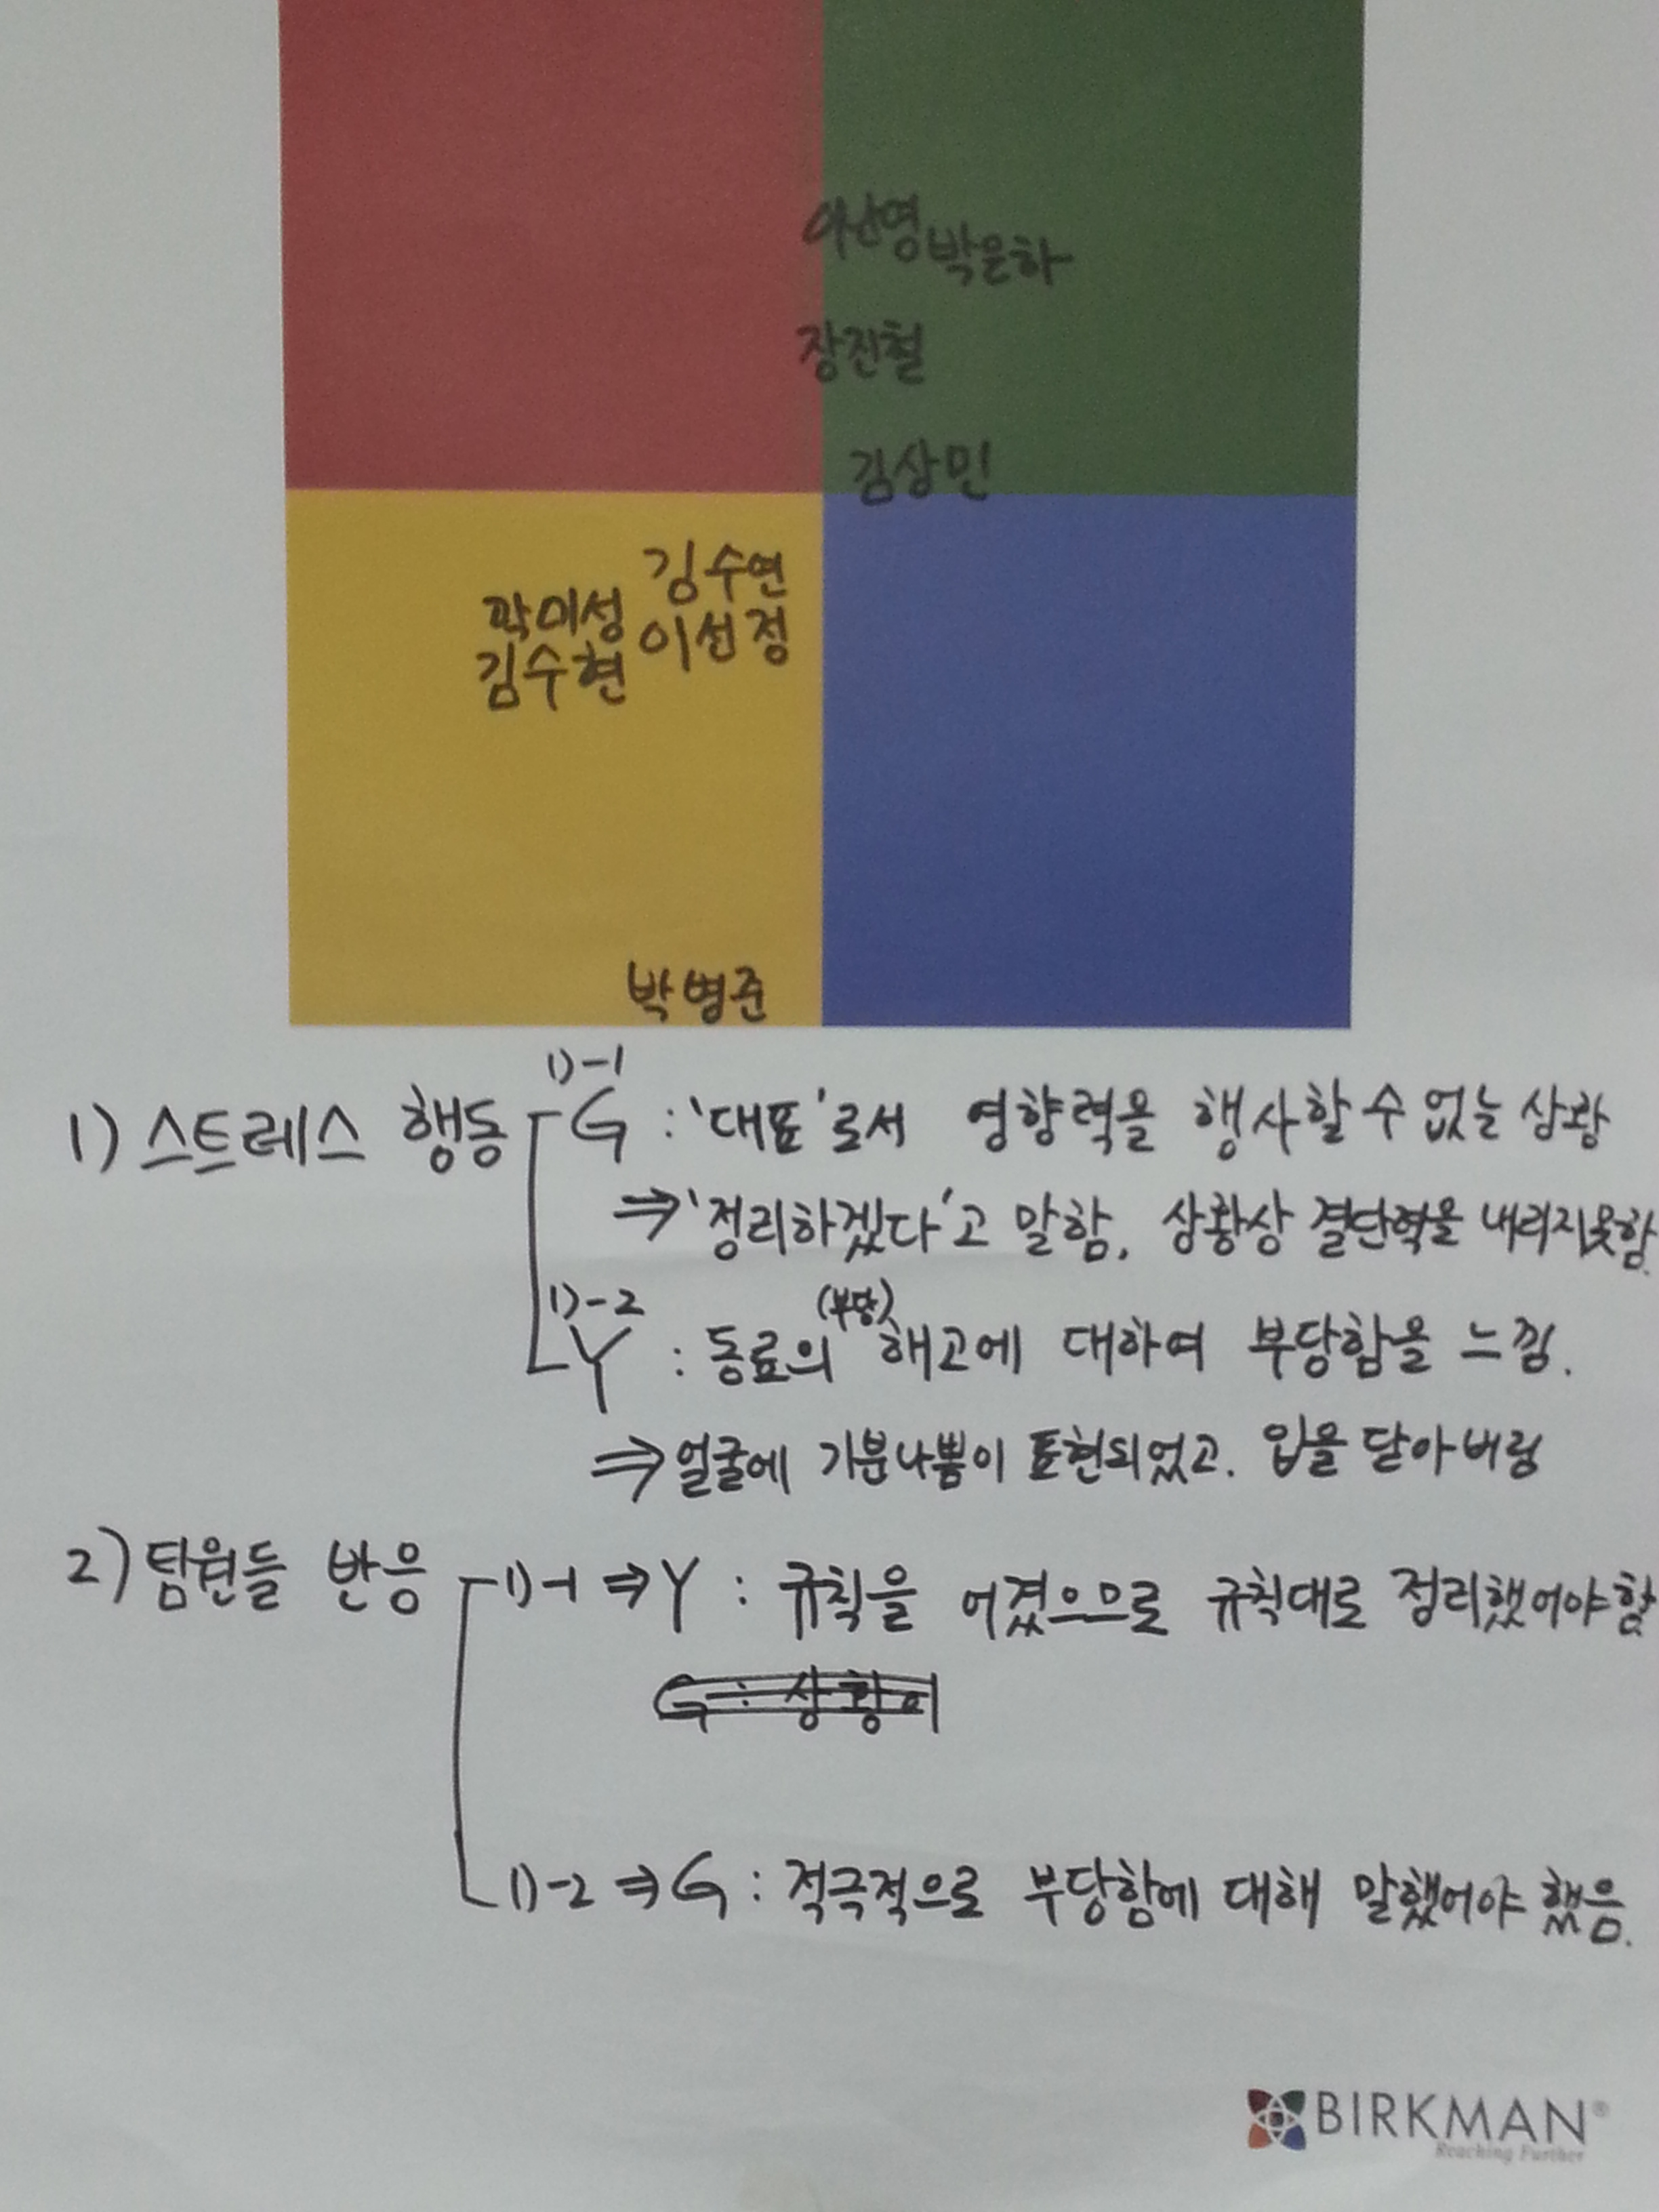 박은하
장진철
김상민
김수연
곽미성 이선정
김수현
박병준
1)-1
1) 스트레스 행동 G : '대표'로서 영향력을 행사할 수 없는 상황
⇒ '정리하겠다'고 말함, 상황상 결단력을 내리지못함.
1)-2 (부당)
Y : 동료의 해고에 대하여 부당함을 느낌.
⇒ 얼굴에 기분나쁨이 표현되었고. 입을 닫아버림
2) 팀원들 반응 1)-1 ⇒ Y : 규칙을 어겼으므로 규칙대로 정리했어야함.
G : 상황이
1)-2 ⇒ G : 적극적으로 부당함에 대해 말했어야 했음.
BIRKMAN®
Reaching Further